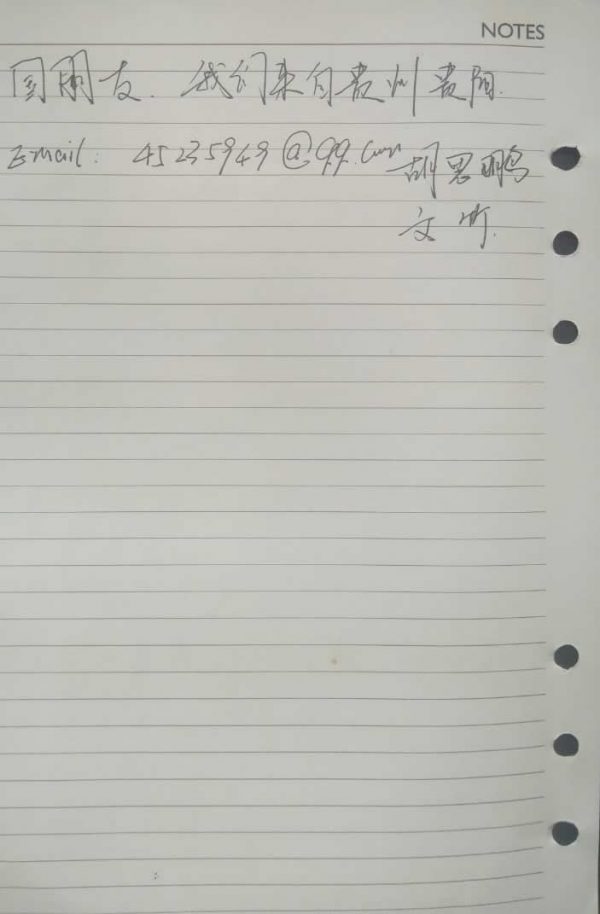 NOTES
国朋友. 我们来自贵州贵阳.
Email: 45235949@qq.com
胡思鹏
文昕.